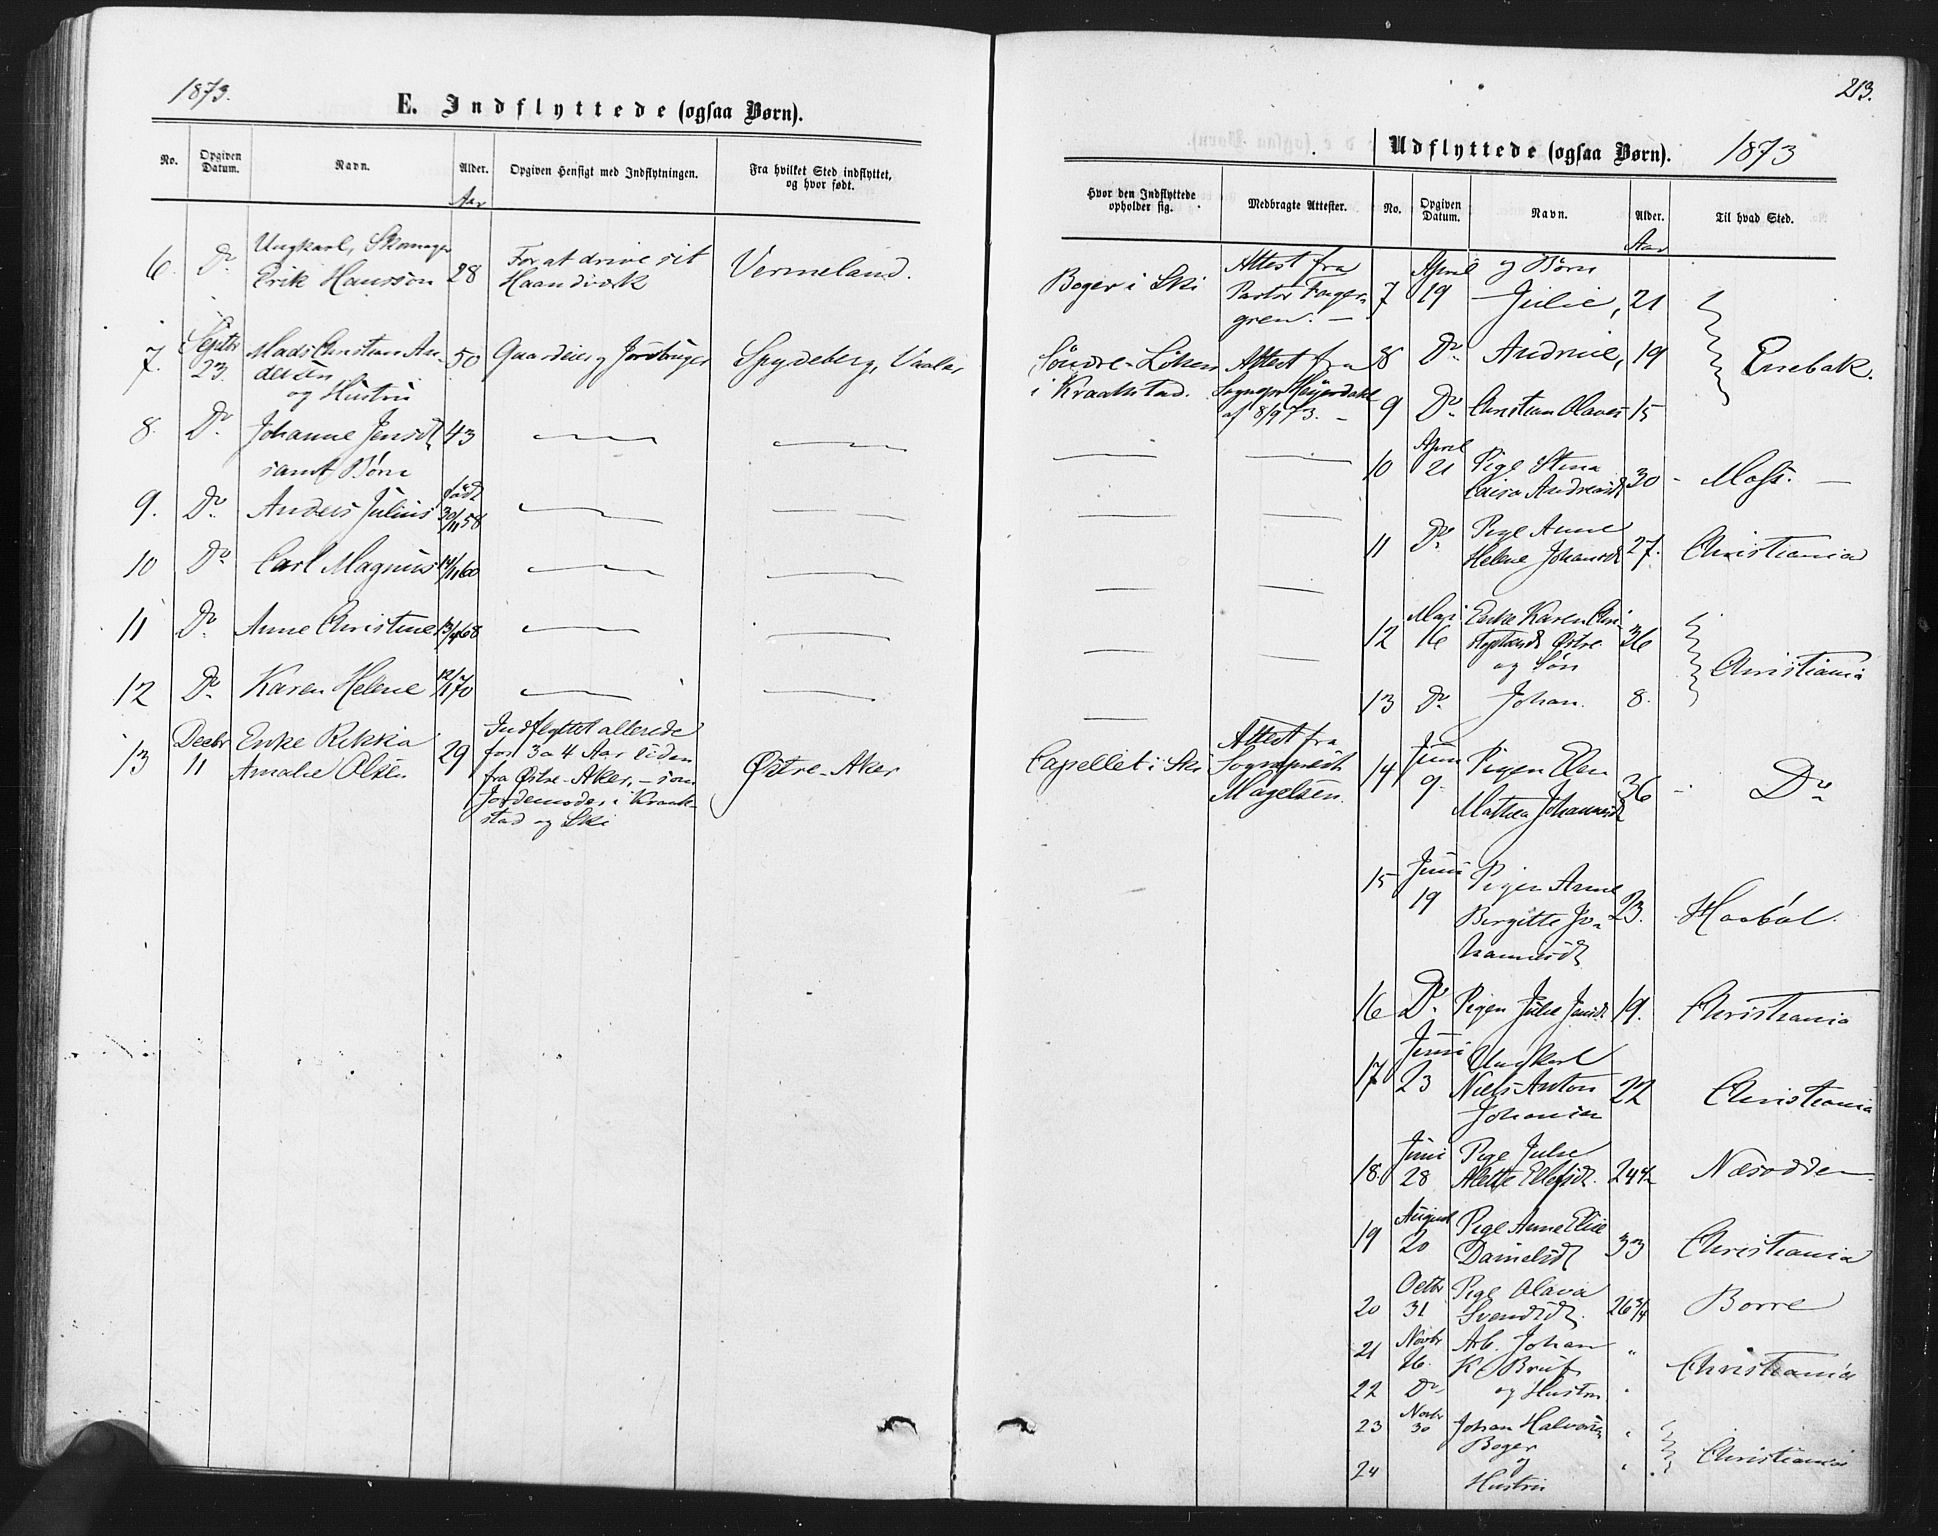 1873.
E. Indflyttede (ogsaa Børn).
No. Opgiven Datum. Navn. Alder. Opgiven Hensigt med Indflytningen. Fra hvilket Sted indflyttet, og hvor født.
Aar
6. Do Ungkarl, Skomager
Erik Hansson 28 For at drive sit
Haandværk Vermeland.
7. Septbr 23. Mads Christian An-
dersen 50 Gaardeier og Jordbruger Spydeberg, Vaaler
og Hustru
8. Do Johanne Jensdt 43 — —
samt Børn
9. Do Anders Julius født 30/11 58 — —
10 Do Carl Magnus 14/11 60 — —
11 Do Anne Christine 13/4 68 — —
12 Do Karen Helene 12/7 70 — —
13 Decbr 11 Enke Rikka
Amalie Olsen 29 Indflyttet allerede
for 3 a 4 Aar siden
fra Østre-Aker, – som
Jordemoder i Kraak-
stad og Ski
Østre-Aker
213.
Udflyttede (ogsaa Børn). 1873
Hvor den Indflyttede opholder sig. Medbragte Attester. No. Opgiven Datum. Navn. Alder. Til hvad Sted.
Aar
Boger i Ski Attest fra
Pastor Fager-
gren. —
Søndre-Løken
i Kraakstad. Attest fra
Sognepr Heyerdahl
af 8/9 73. –
Capellet i Ski Attest fra
Sogneprest
Magelsen.
7 April 19 og Børn
– Julie, 21
8 Do Andrine, 19 Enebak.
9 Do Christian Olaves 15
10 April 21 Pige Stina
Caisa Andreasdt 30 - Moss. —
11 Do Pige Anne
Helene Johansdt 27. Christiania
12 Mai 16 Enke Karen Chri-
stophersdt Østre 36
og Søn Christiania
13 Do Johan. 8.
14 Juni 9. Pigen Elen
Mathea Johannesdt 36 - Do
15 Juni 19 Pigen Anne
Birgitte Jo-
hannesdt 23. Haabøl.
16 Do Pigen Julie Jensdt 19. Christiania
17 Juni 23 Ungkarl
Niels Anton
Johansen 22 Christiania
18. Juni 28 Pige Julie
Alette Ellefsdt. 24 1/2 Næsodden
19 August 20 Pige Anne Elise
Danielsdt 33 Christiania
20 Octbr 31 Pige Olava
Svendsdt. 26 3/4 Borre
21 Novbr 26. Arb. Johan
K. Bruf " Christiania
22 Do og Hustru "
23 Novbr 30 Johan Halvorsen
Boger " Christiania
og
24 Hustru "